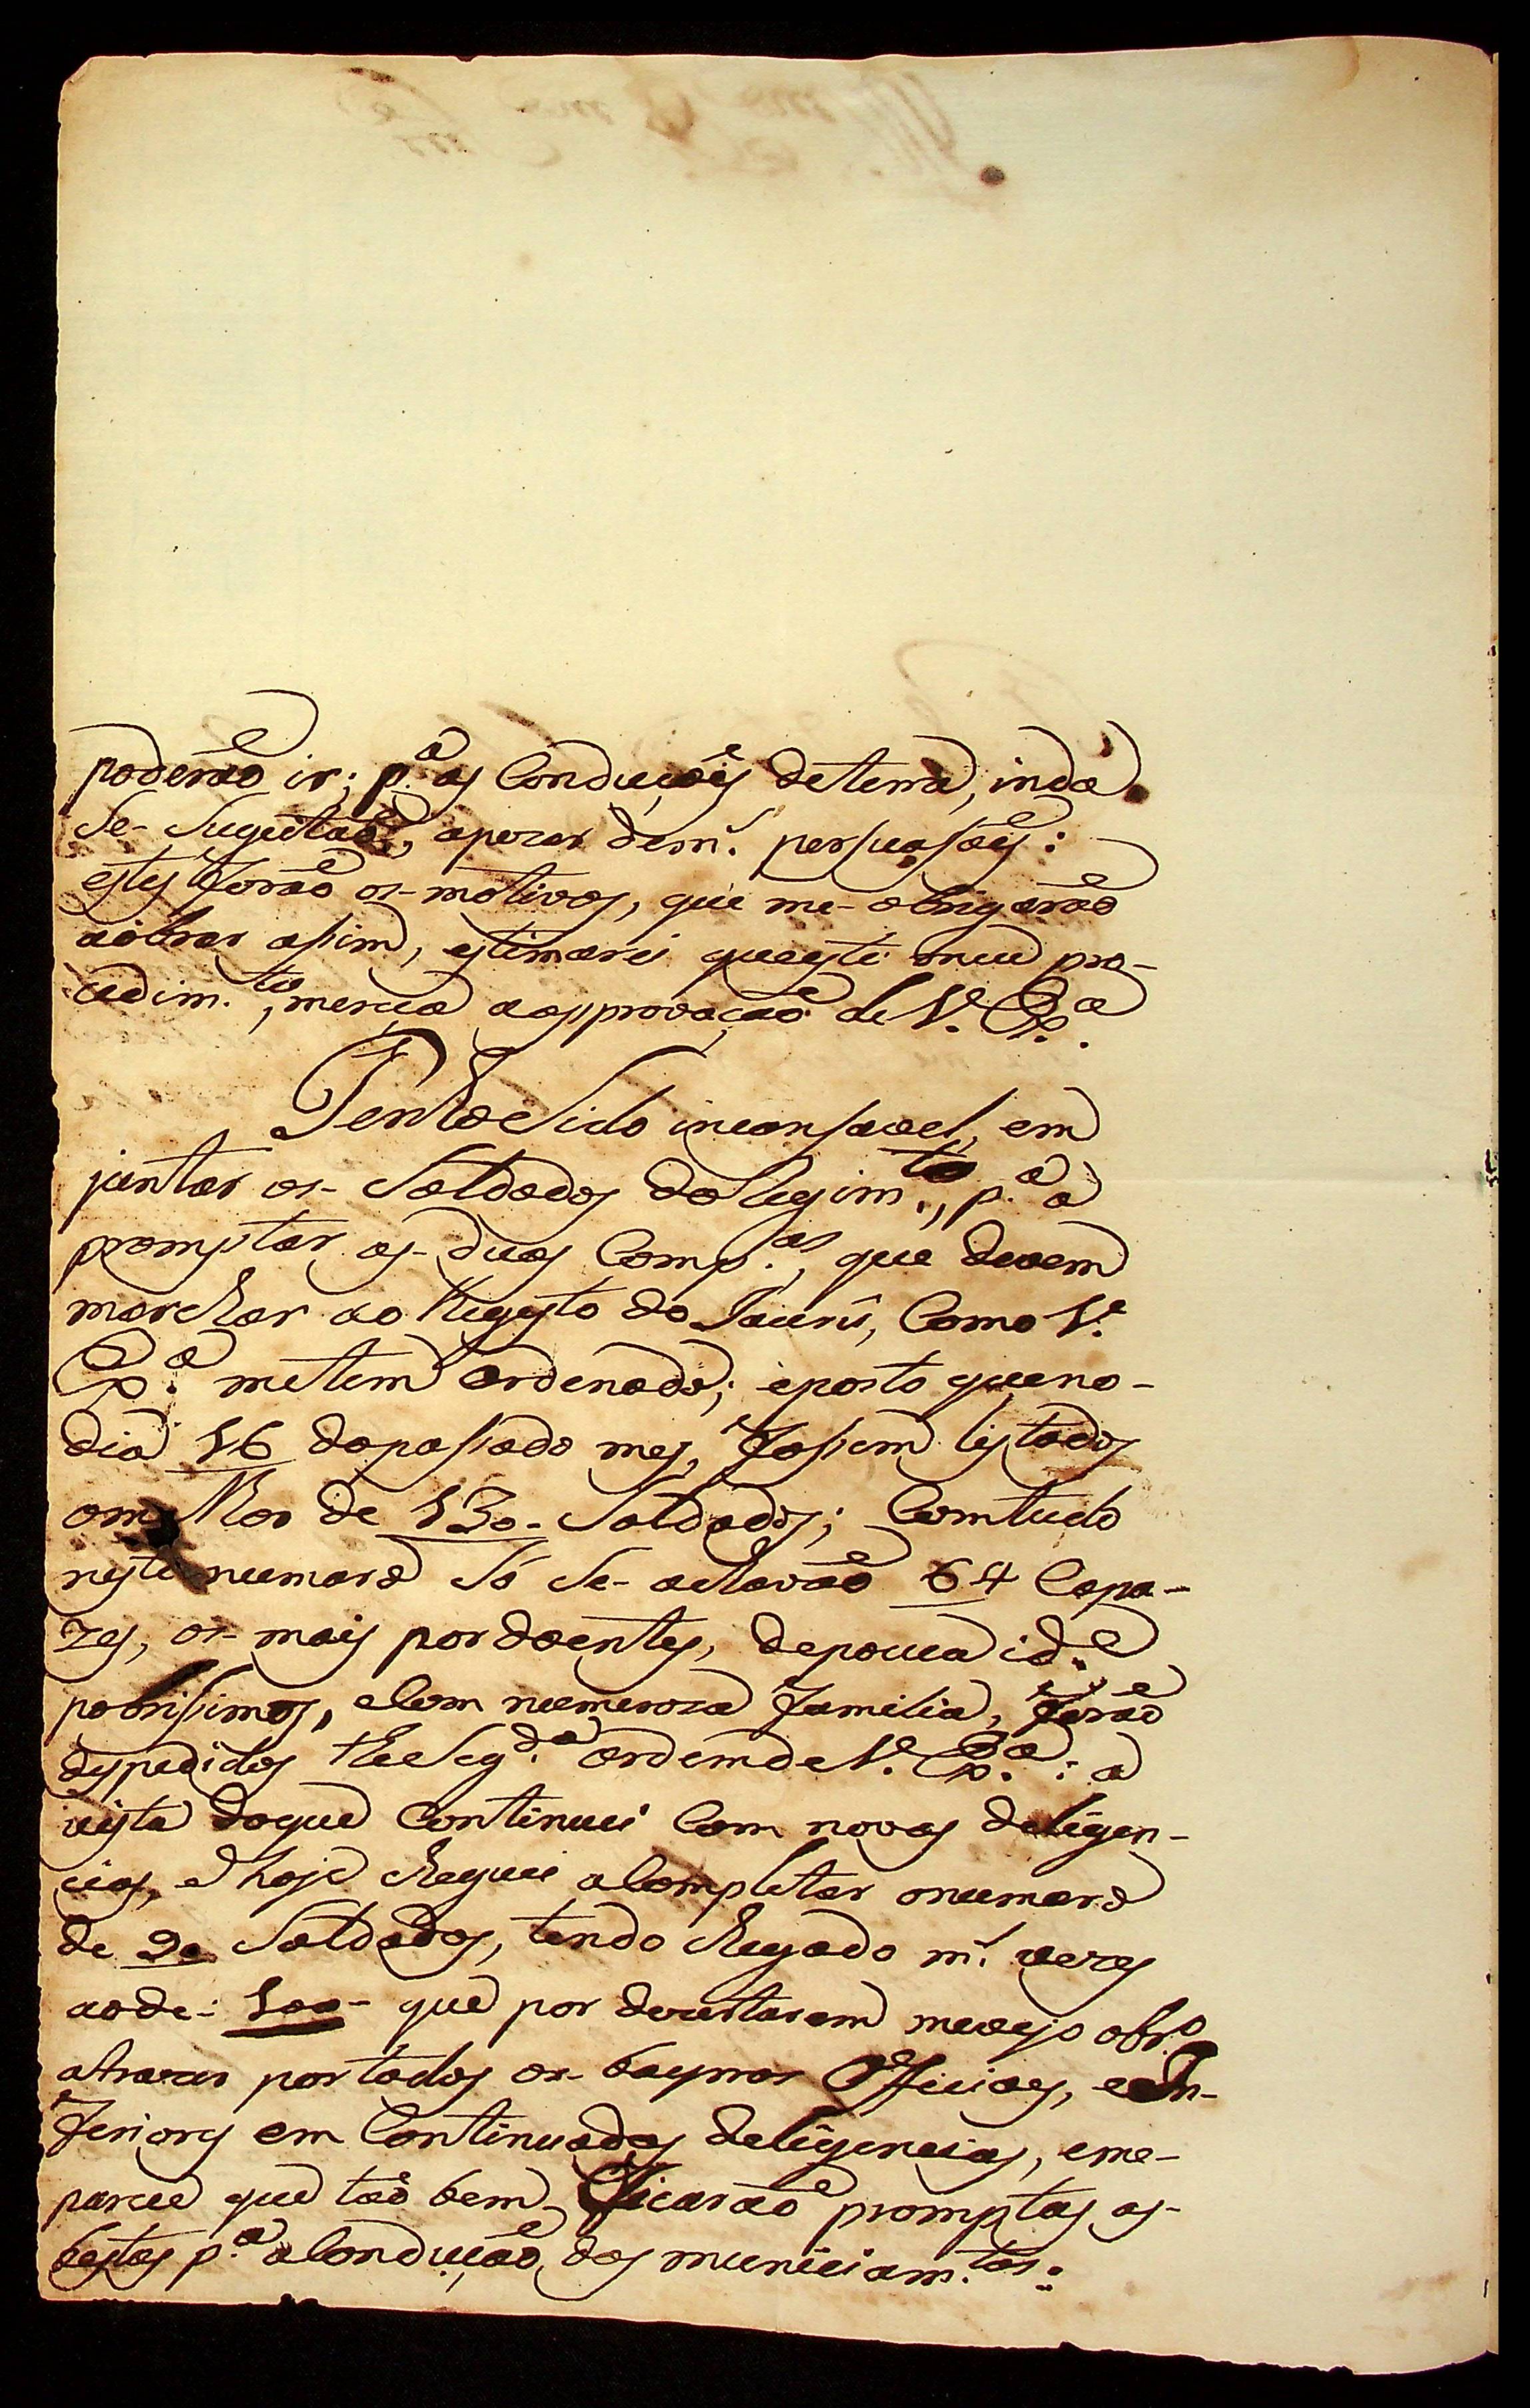 poderaõ ir; p.ª as Conduçoẽs deterra, inda
se-sugeitaõ, apezar dem.s persuasoẽs:
estes foraõ os-motivos, que me-obrigaraõ
aobrar asim, estimarei queeste meu pro-
cedim.to, mereça aapprovaçaõ de V. Ex.ª
Tenho Sido incansavel, em
juntar os-Soldados doRegim.to, p.ª a
promptar as-duas Comp.as, que devem
marchar ao Registo do Jaurú, Como V.
Ex.ª metem ordenado; eposto queno-
dia 16 dopassado mes, fossem listados
omilhor de 130-Soldados; Comtudo
neste numaro Só Se-achavaõ 64 Capa-
zes, os-mais pordoentes, depouca id.e
pobrissimos, eCom numeroza familia, foraõ
despedidos the seg.da ordemdeV. Ex.ª: a
vista doque Continuei Com novas deligen-
cias, e hoje cheguei aCompletar onumaro
de 90 Soldados, tendo chegado m.s vezes
aode-100-que por dezertarem mevejo obr.o
atrazer portodos os-bayrros Officiaes, eIn-
feriores em Continuadas deligencias, eme-
parece que taõ bem ficaraõ promptas as-
bestas p.ª aConduçaõ dos municiam.tos: